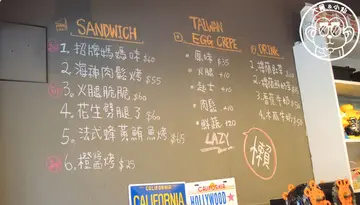 SANDWICH
1. 招牌媽媽味 $40
2. 海神肉鬆烤 $55
3. 火腿脆脆 $60
4. 花生劈腿了 $60
5. 法式蜂蒸鮪魚烤 $65
6. 橙醬烤 $25
TAIWAN
EGG CREPE
原味 $35
火腿 +10
起士 +10
肉鬆 +10
鮮蔬 +20
LAZY
懶
DRINK
1.
2.
3.
4.
CALIFORNIA
CALIFORNIA
HOLLYWOOD